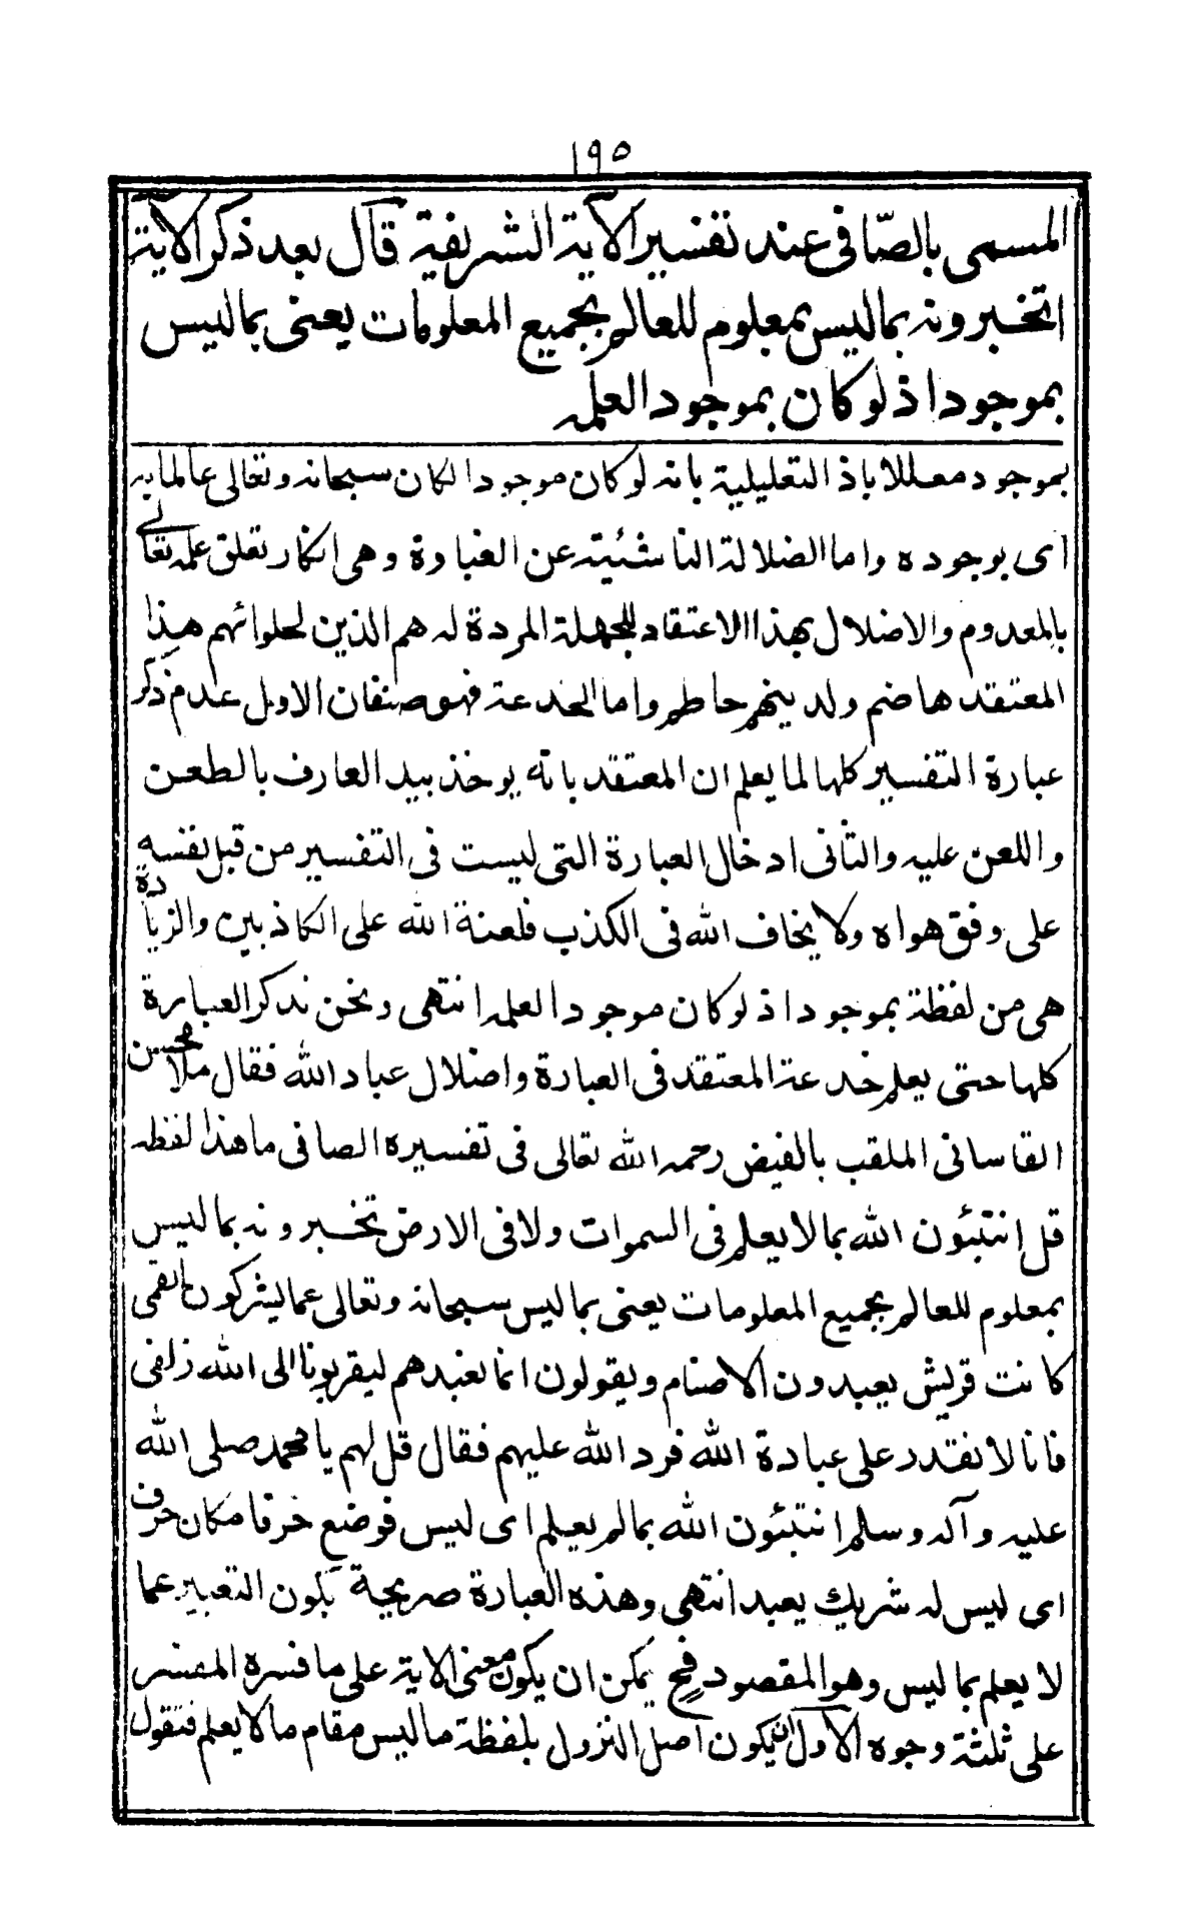 ١٩٥
المسمى بالصّافى عند تفسير الآية الشريفية قال بعد ذكر الآية
اتخبرونه بماليس بمعلوم للعالم بجميع المعلومات يعنى بماليس
بموجود اذ لوكان بموجود العلمه
بموجود معللا باذ التعليلية بانه لوكان موجود الكان سبحانه وتعالى عالما به
اى بوجوده واما الضلالة الناشئية عن الغباوة وهى انكار تعلق علمه تعالى
بالمعدوم والاضلال بهذا الاعتقاد للجهلة المردة له هم الذين لحلوائهم هذا
المعتقد هاضم ولدينهم حاطم واما الخدعة فهو صنفان الاول عدم ذكر
عبارة التفسير كلها لما يعلم ان المعتقد بانه يوخذ بيد العارف بالطعن
واللعن عليه والثانى ادخال العبارة التى ليست فى التفسير من قبل نفسه
على وفق هواه ولا يخاف الله فى الكذب فلعنة الله على الكاذبين والزيادة
هى من لفظة بموجود اذ لوكان موجود العلمه انتهى ونحن نذكر العبارة
كلها حتى يعلم خدعة المعتقد فى العبارة واضلال عباد الله فقال ملا محسن
القاسانى الملقب بالفيض رحمه الله تعالى فى تفسيره الصافى ما هذا لفظه
قل انتبئون الله بما لا يعلم فى السموات ولا فى الارض تخبرونه بما ليس
بمعلوم للعالم بجميع المعلومات يعنى بما ليس سبحانه وتعالى عما يشركون القمى
كانت قريش يعبدون الاصنام ويقولون انما نعبدهم ليقربونا الى الله زلفى
فانا لا نقدر على عبادة الله فرد الله عليهم فقال قل لهم يا محمد صلى الله
عليه وآله وسلم انتبئون الله بما لم يعلم اى ليس فوضع حرفا مكان حرف
اى ليس له شريك يعبد انتهى وهذه العبارة صريحة بكون التعبير عما
لا يعلم بما ليس وهو المقصود فح يمكن ان يكون معنى الاية على ما فسره المفسر
على ثلثة وجوه الاول ان يكون اصل النزول بلفظة ما ليس مقام ما لا يعلم فتقول